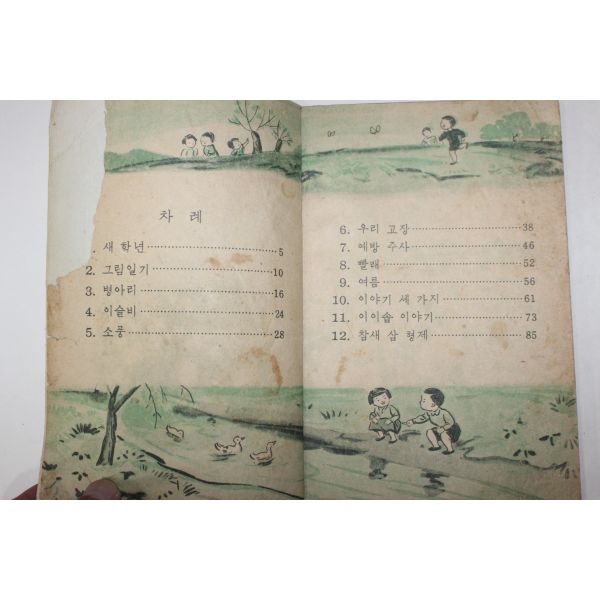 차 례
. 새 학년 5
2. 그림일기 10
3. 병아리 16
4. 이슬비 24
5. 소풍 28
6. 우리 고장 38
7. 예방 주사 46
8. 빨래 52
9. 여름 56
10. 이야기 세 가지 61
11. 이이솝 이야기 73
12. 참새 삼 형제 85